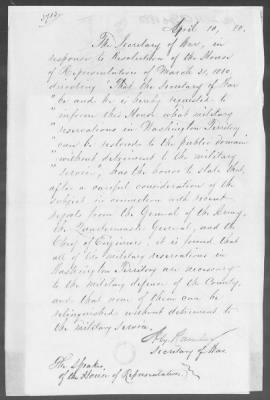 April 10, 80.
The Secretary of War, in
response to Resolution of the House
of Representatives of March 31, 1880,
directing "That the Secretary of War
"be and he is hereby requested to
"inform this House what military
"reservations in Washington Territory
"can be restored to the public domain
"without detriment to the military
"service", has the honor to state that,
after a careful consideration of the
subject in connection with recent
reports from the General of the Army,
the Quartermaster General, and the
Chief of Engineers, it is found that
all of the military reservations in
Washington Territory are necessary
to the military defence of the Country,
and that none of them can be
relinquished without detriment to
the military service.
Alex Ramsey
Secretary of War
The Speaker,
of the House of Representatives